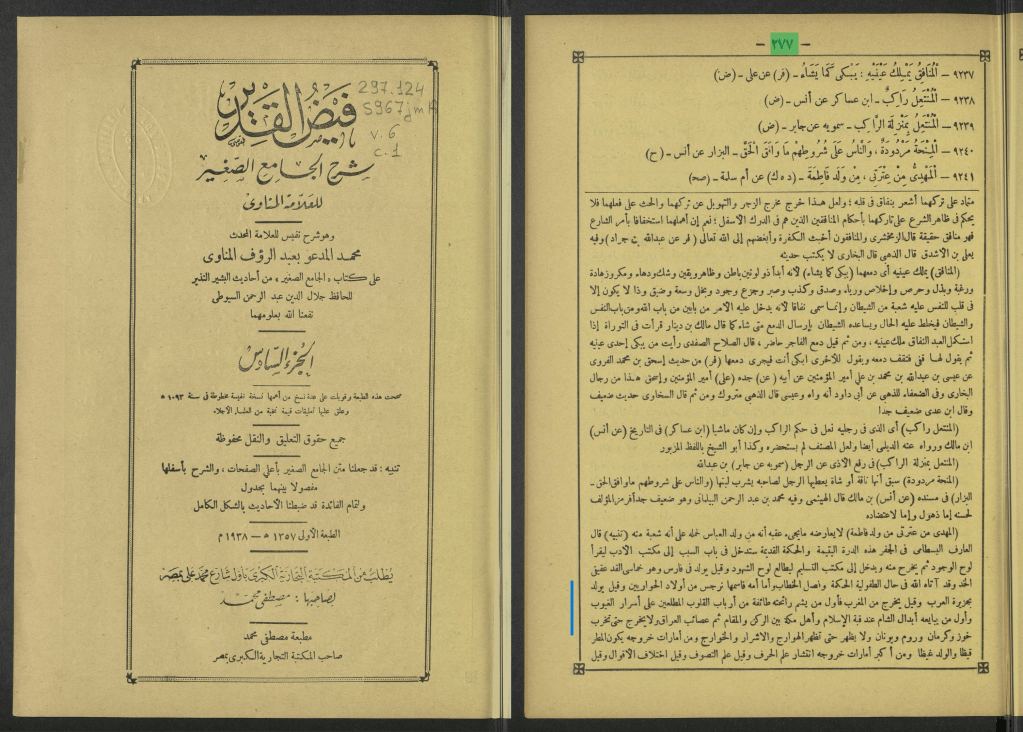 فيض القدير
297.124
S967jmA
v. 6
c. 1
شرح الجامع الصغير
للعلامة المناوى
وهو شرح نفيس للعلامة المحدث
محمد المدعو بعبد الرؤف المناوى
على كتاب «الجامع الصغير» من أحاديث البشير النذير
للحافظ جلال الدين عبد الرحمن السيوطى
نفعنا الله بعلومهما
الجزء السادس
صححت هذه الطبعة وقوبلت على عدة نسخ من أهمها نسخة نفيسة مخطوطة فى سنة ١٠٩٣ ه
وعلق عليها تعليقات قيمة نخبة من العلماء الأجلاء
جميع حقوق التعليق والنقل محفوظة
تنبيه : قد جعلنا متن الجامع الصغير بأعلى الصفحات ، والشرح بأسفلها
مفصولا بينهما بجدول
ولتمام الفائدة قد ضبطنا الأحاديث بالشكل الكامل
الطبعة الأولى ١٣٥٧ ه - ١٩٣٨ م
يطلب من المكتبة التجارية الكبرى بأول شارع محمد على بمصر
لصاحبها : مصطفى محمد
مطبعة مصطفى محمد
صاحب المكتبة التجارية الكبرى بمصر
— ٢٧٧ —
٩٢٣٧ — الْمُنَافِقُ يَمْلِكُ عَيْنَيْهِ : يَبْكِى كَمَا يَشَاءُ - (فر) عن على - (ض)
٩٢٣٨ — الْمُنْتَعِلُ رَاكِبٌ - ابن عساكر عن أنس - (ض)
٩٢٣٩ — الْمُنْتَعِلُ بِمَنْزِلَةِ الرَّاكِبِ - سمويه عن جابر - (ض)
٩٢٤٠ — الْمِنْحَةُ مَرْدُودَةٌ ، وَالنَّاسُ عَلَى شُرُوطِهِمْ مَا وَافَقَ الْحَقَّ - البزار عن أنس - (ح)
٩٢٤١ — الْمَهْدِىُّ مِنْ عِتْرَتِى ، مِنْ وَلَدِ فَاطِمَةَ - (د ه ك) عن أم سلمة - (صح)
متماد على تركهما أشعر بنفاق فى قلبه ؛ ولعل هذا خرج مخرج الزجر والتهويل عن تركهما والحث على فعلهما فلا
يحكم فى ظاهر الشرع على تاركهما بأحكام المنافقين الذين هم فى الدرك الأسفل ؛ نعم إن أهملهما استخفافا بأمر الشارع
فهو منافق حقيقة قال الزمخشرى والمنافقون أخبث الكفرة وأبغضهم إلى الله تعالى (فر عن عبدالله بن جراد) وفيه
يعلى بن الأشدق قال الذهبى قال البخارى لا يكتب حديثه
(المنافق) يملك عينيه أى دمعهما (يبكى كما يشاء) لأنه أبدا ذو لونين باطن وظاهر ويقين وشك ودهاء ومكر وزهادة
ورغبة وبذل وحرص وإخلاص ورياء وصدق وكذب وصبر وجزع وجود وبخل وسعة وضيق وذا لا يكون إلا
فى قلب للنفس عليه شعبة من الشيطان وإنما سمى نفاقا لأنه يدخل عليه الأمر من بابين من باب الله ومن باب النفس
والشيطان فيخلط عليه الحال ويساعده الشيطان بإرسال الدمع متى شاء كما قال مالك بن دينار قرأت فى التوراة إذا
استكمل العبد النفاق ملك عينيه ، ومن ثم قيل دمع الفاجر حاضر ، قال الصلاح الصفدى رأيت من يبكى إحدى عينيه
ثم يقول لها قفى فتقف دمعه ويقول للأخرى ابكى أنت فيجرى دمعها (فر) من حديث إسحق بن محمد الفروى
عن عيسى بن عبدالله بن محمد بن على أمير المؤمنين عن أبيه (عن) جده (على) أمير المؤمنين وإسحق هذا من رجال
البخارى وفى الضعفاء للذهبى عن أبى داود أنه واه وعيسى قال الذهبى متروك ومن ثم قال السخاوى حديث ضعيف
وقال ابن عدى ضعيف جدا
(المنتعل راكب) أى الذى فى رجليه نعل فى حكم الراكب وإن كان ماشيا (ابن عساكر) فى التاريخ (عن أنس)
ابن مالك ورواه عنه الديلمى أيضا ولعل المصنف لم يستحضره وكذا أبو الشيخ باللفظ المزبور
(المنتعل بمنزلة الراكب) فى رفع الأذى عن الرجل (سمويه عن جابر) بن عبدالله
(المنحة مردودة) سبق أنها ناقة أو شاة يعطيها الرجل لصاحبه يشرب لبنها (والناس على شروطهم ما وافق الحق -
البزار) فى مسنده (عن أنس) بن مالك قال الهيثمى وفيه محمد بن عبد الرحمن البيلمانى وهو ضعيف جدا فرمز المؤلف
لحسنه إما ذهول وإما لاعتضاده
(المهدى من عترتى من ولد فاطمة) لا يعارضه ما يجىء عقبه أنه من ولد العباس لحمله على أنه شعبة منه (تنبيه) قال
العارف البسطامى فى الجفر هذه الدرة اليتيمة والحكمة القديمة ستدخل فى باب السبب إلى مكتب الأدب ليقرأ
لوح الوجود ثم يخرج منه ويدخل إلى مكتب التسليم ليطالع لوح الشهود وقيل يولد فى فارس وهو خماسى القد عقيقى
الخد وقد آتاه الله فى حال الطفولية الحكمة وفصل الخطاب وأما أمه فاسمها نرجس من أولاد الحواريين وقيل يولد
بجزيرة العرب وقيل يخرج من المغرب فأول من يشم رائحته طائفة من أرباب القلوب المطلعين على أسرار الغيوب
وأول من يبايعه أبدال الشام عند قبة الإسلام وأهل مكة بين الركن والمقام ثم عصائب العراق ولا يخرج حتى تخرب
خوز وكرمان وروم ويونان ولا يظهر حتى تظهر الخوارج والأشرار والخوارج ومن أمارات خروجه يكون المطر
قيظا والولد غيظا ومن أكبر أمارات خروجه انتشار علم الحرف وقيل علم التصوف وقيل اختلاف الأقوال وقيل